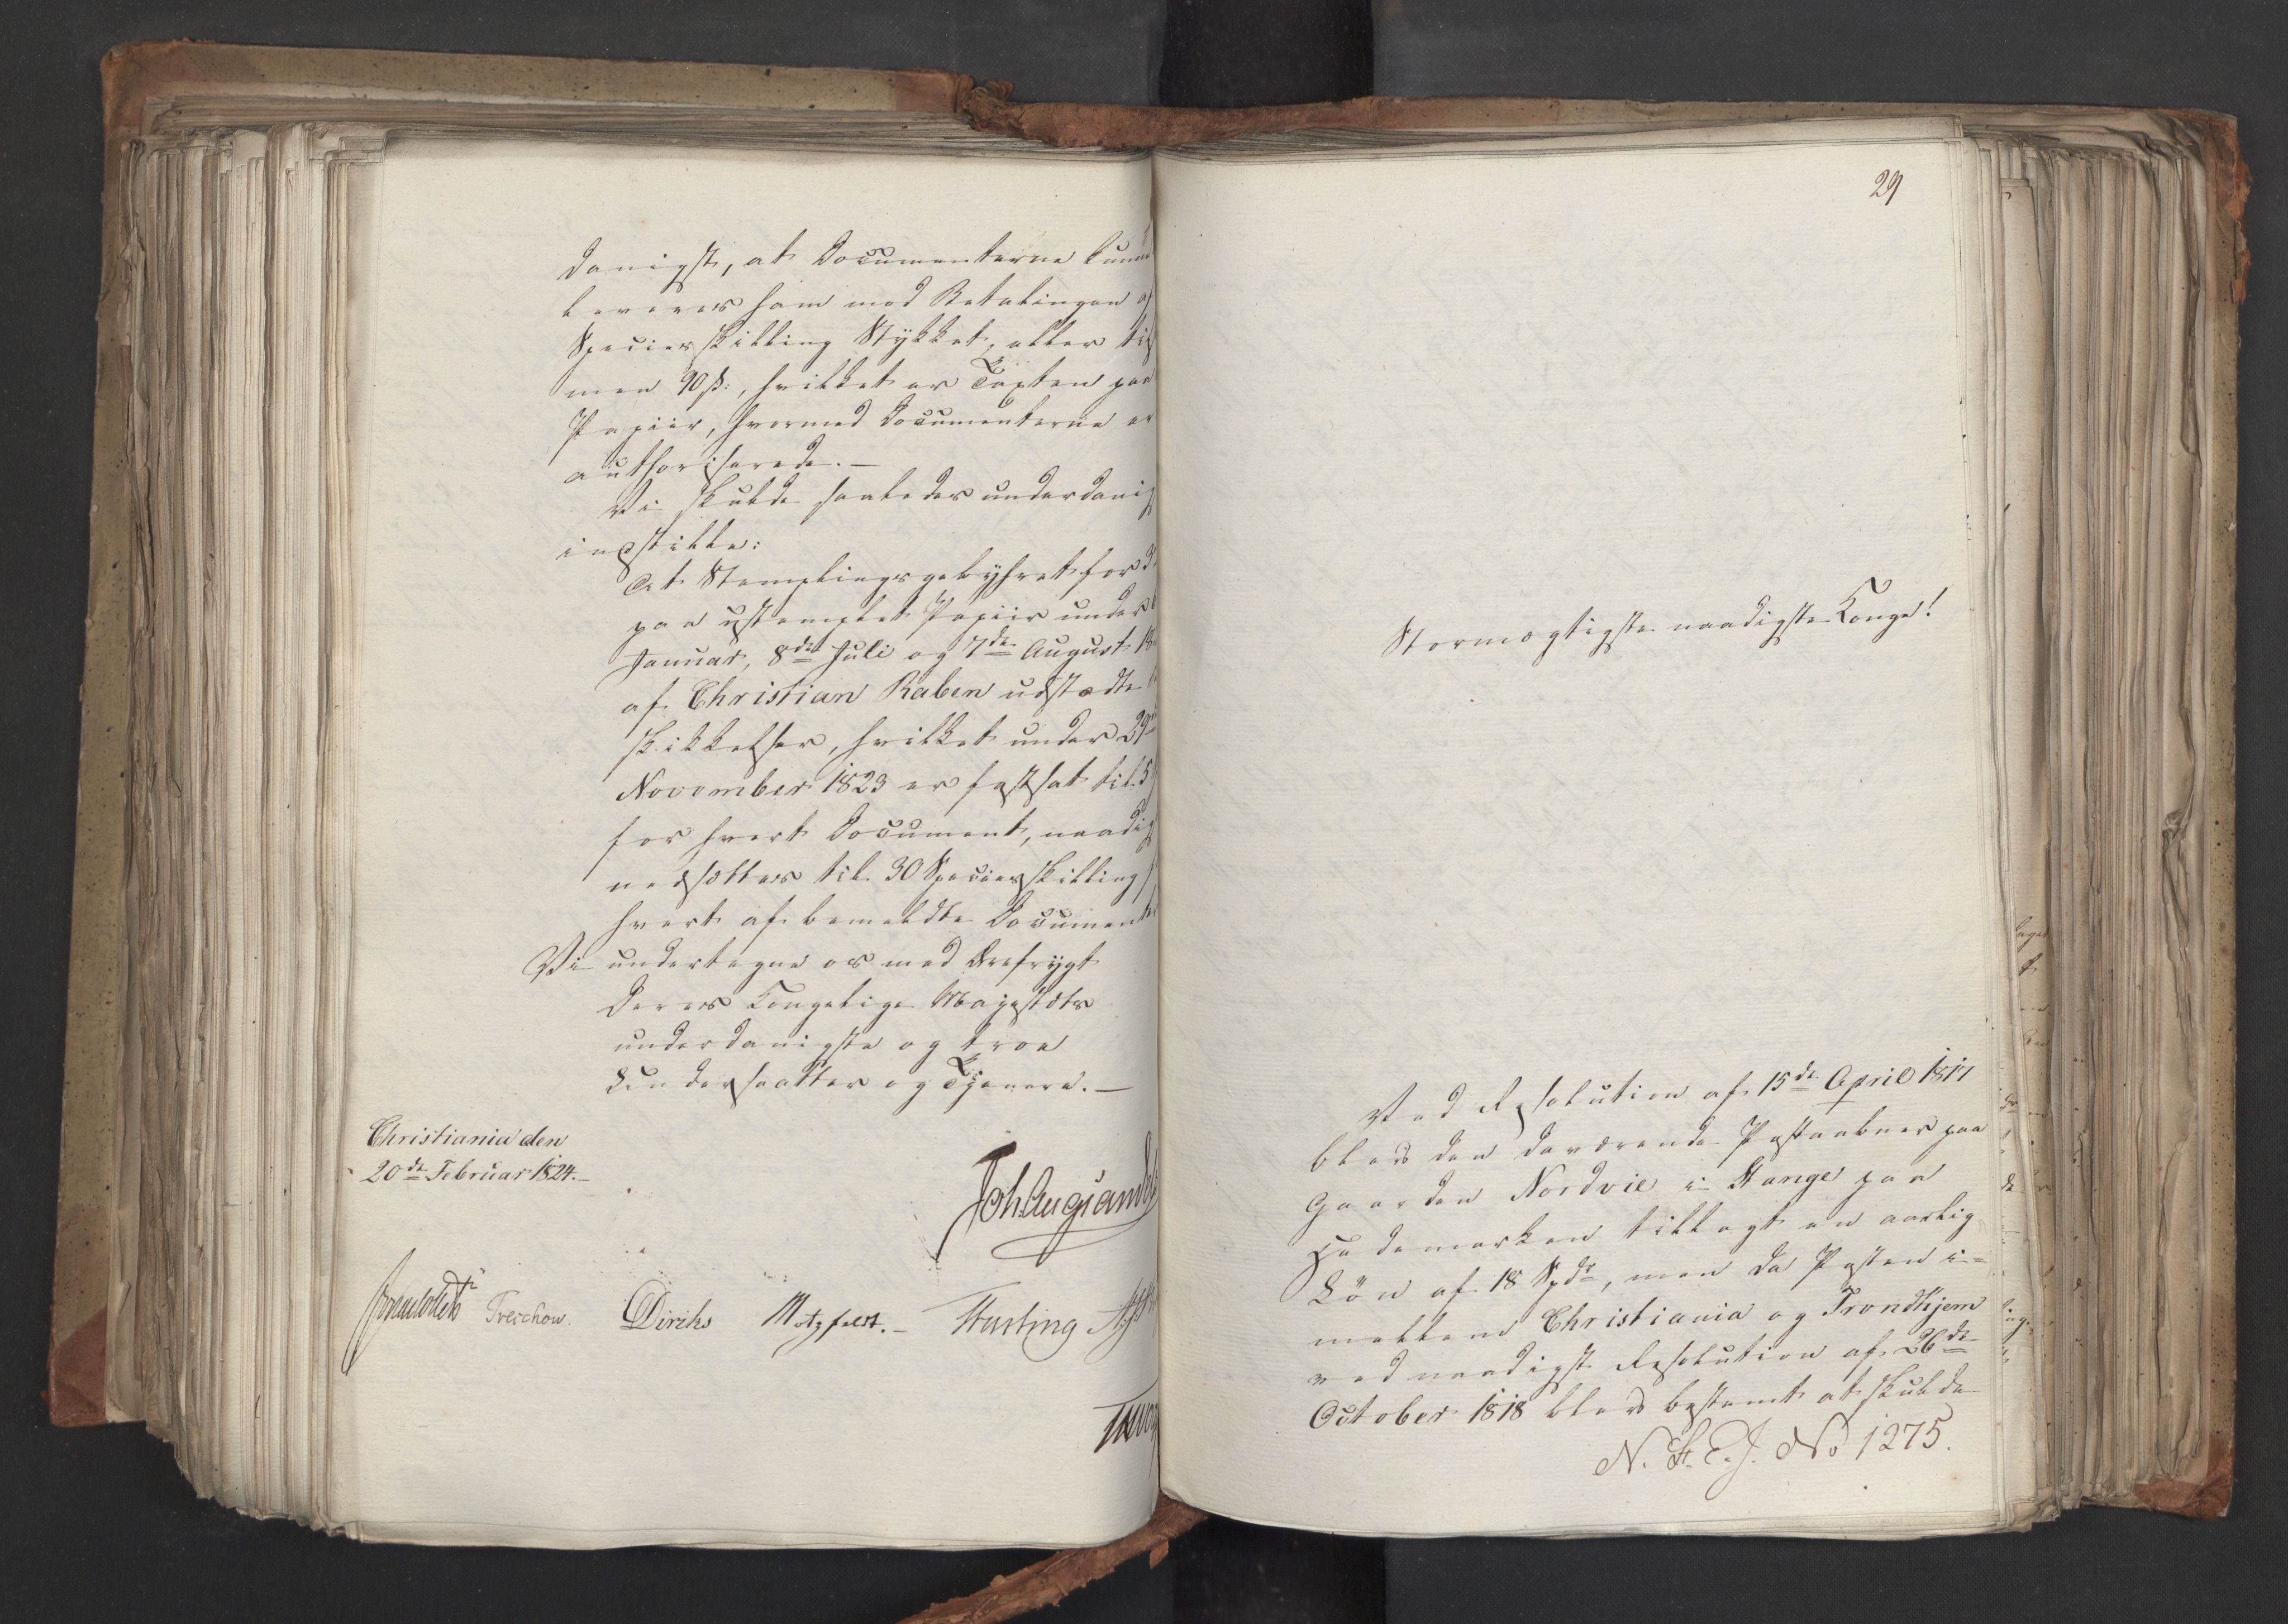 danigst, at Documenterne kunne
leveres ham mod Betalingen af
Speciesskilling Stykket, eller til
men 90 ß:, hvilket er Taxten paa
Papiir, hvormed Documenterne er
authoriserede. —
Vi skulde saaledes underdanig
indstille:
At Stemplingsgebyhret for 3
paa ustemplet Papiir under
Januar, 8de Juli og 7de August 18
af Christian Raben udstædte
skikkelser, hvilket under 29
November 1823 er fastsat til 5
for hvert Document, naadig
nedsættes til 30 Speciesskilling
hvert af bemeldte Documenter
Vi undertegne os med Ærefrygt
Deres Kongelige Majestæts
underdanigste og troe
Undersaatter og Tjenere. —
Christiania den
20de Februar 1824. —
Joh August Sandels
Treschow. Diriks Motzfeldt. — Fasting
29
Stormægtigste naadigste Konge!
Ved Resolution af 15de April 1817
blev den daværende Postaabner paa
Gaarden Nordvie i Stange paa
Hedemarken tillagt en aarlig
Løn af 18 Spdr, men da Posten i-
mellem Christiania og Trondhjem
ved naadigst Resolution af 26de
October 1818 blev bestemt at skulde
N. St. E. J. No 1275.